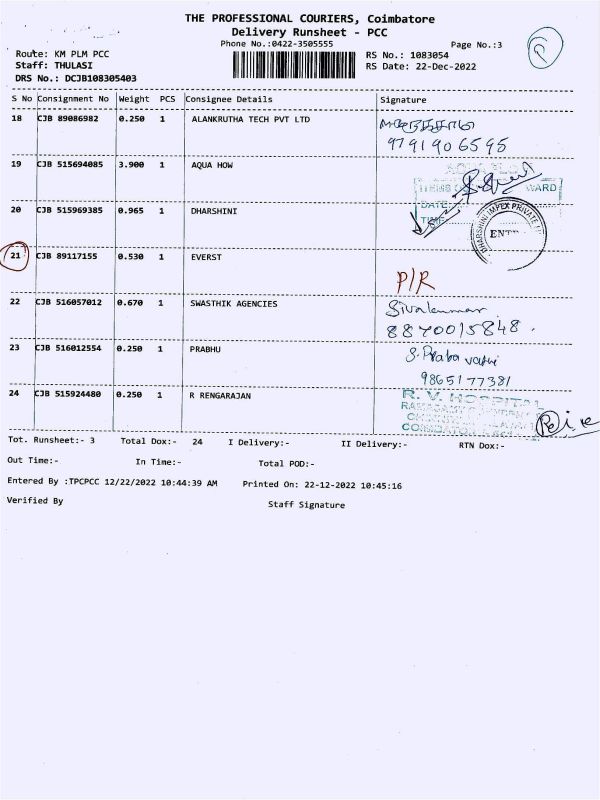 THE PROFESSIONAL COURIERS, Coimbatore
Delivery Runsheet - PCC
Phone No.:0422-3505555
Page No.:3
Route: KM PLM PCC
RS No.: 1083054
Staff: THULASI
RS Date: 22-Dec-2022
DRS No.: DCJB108305403
S No Consignment No Weight PCS Consignee Details Signature
18 CJB 89086982 0.250 1 ALANKRUTHA TECH PVT LTD
9791906595
19 CJB 515694085 3.900 1 AQUA HOW
ITEMS WARD
DATE
TIME
20 CJB 515969385 0.965 1 DHARSHINI
DHARSHINI IMPEX PRIVATE
21 CJB 89117155 0.530 1 EVERST
P/R
22 CJB 516057012 0.670 1 SWASTHIK AGENCIES Sivakumar
8870015848.
23 CJB 516012554 0.250 1 PRABHU S. Praba vathi
9865177381
24 CJB 515924480 0.250 1 R RENGARAJAN
R. V. HOSPITAL
Tot. Runsheet:- 3 Total Dox:- 24 I Delivery:- II Delivery:- RTN Dox:-
Out Time:- In Time:- Total POD:-
Entered By :TPCPCC 12/22/2022 10:44:39 AM Printed On: 22-12-2022 10:45:16
Verified By Staff Signature